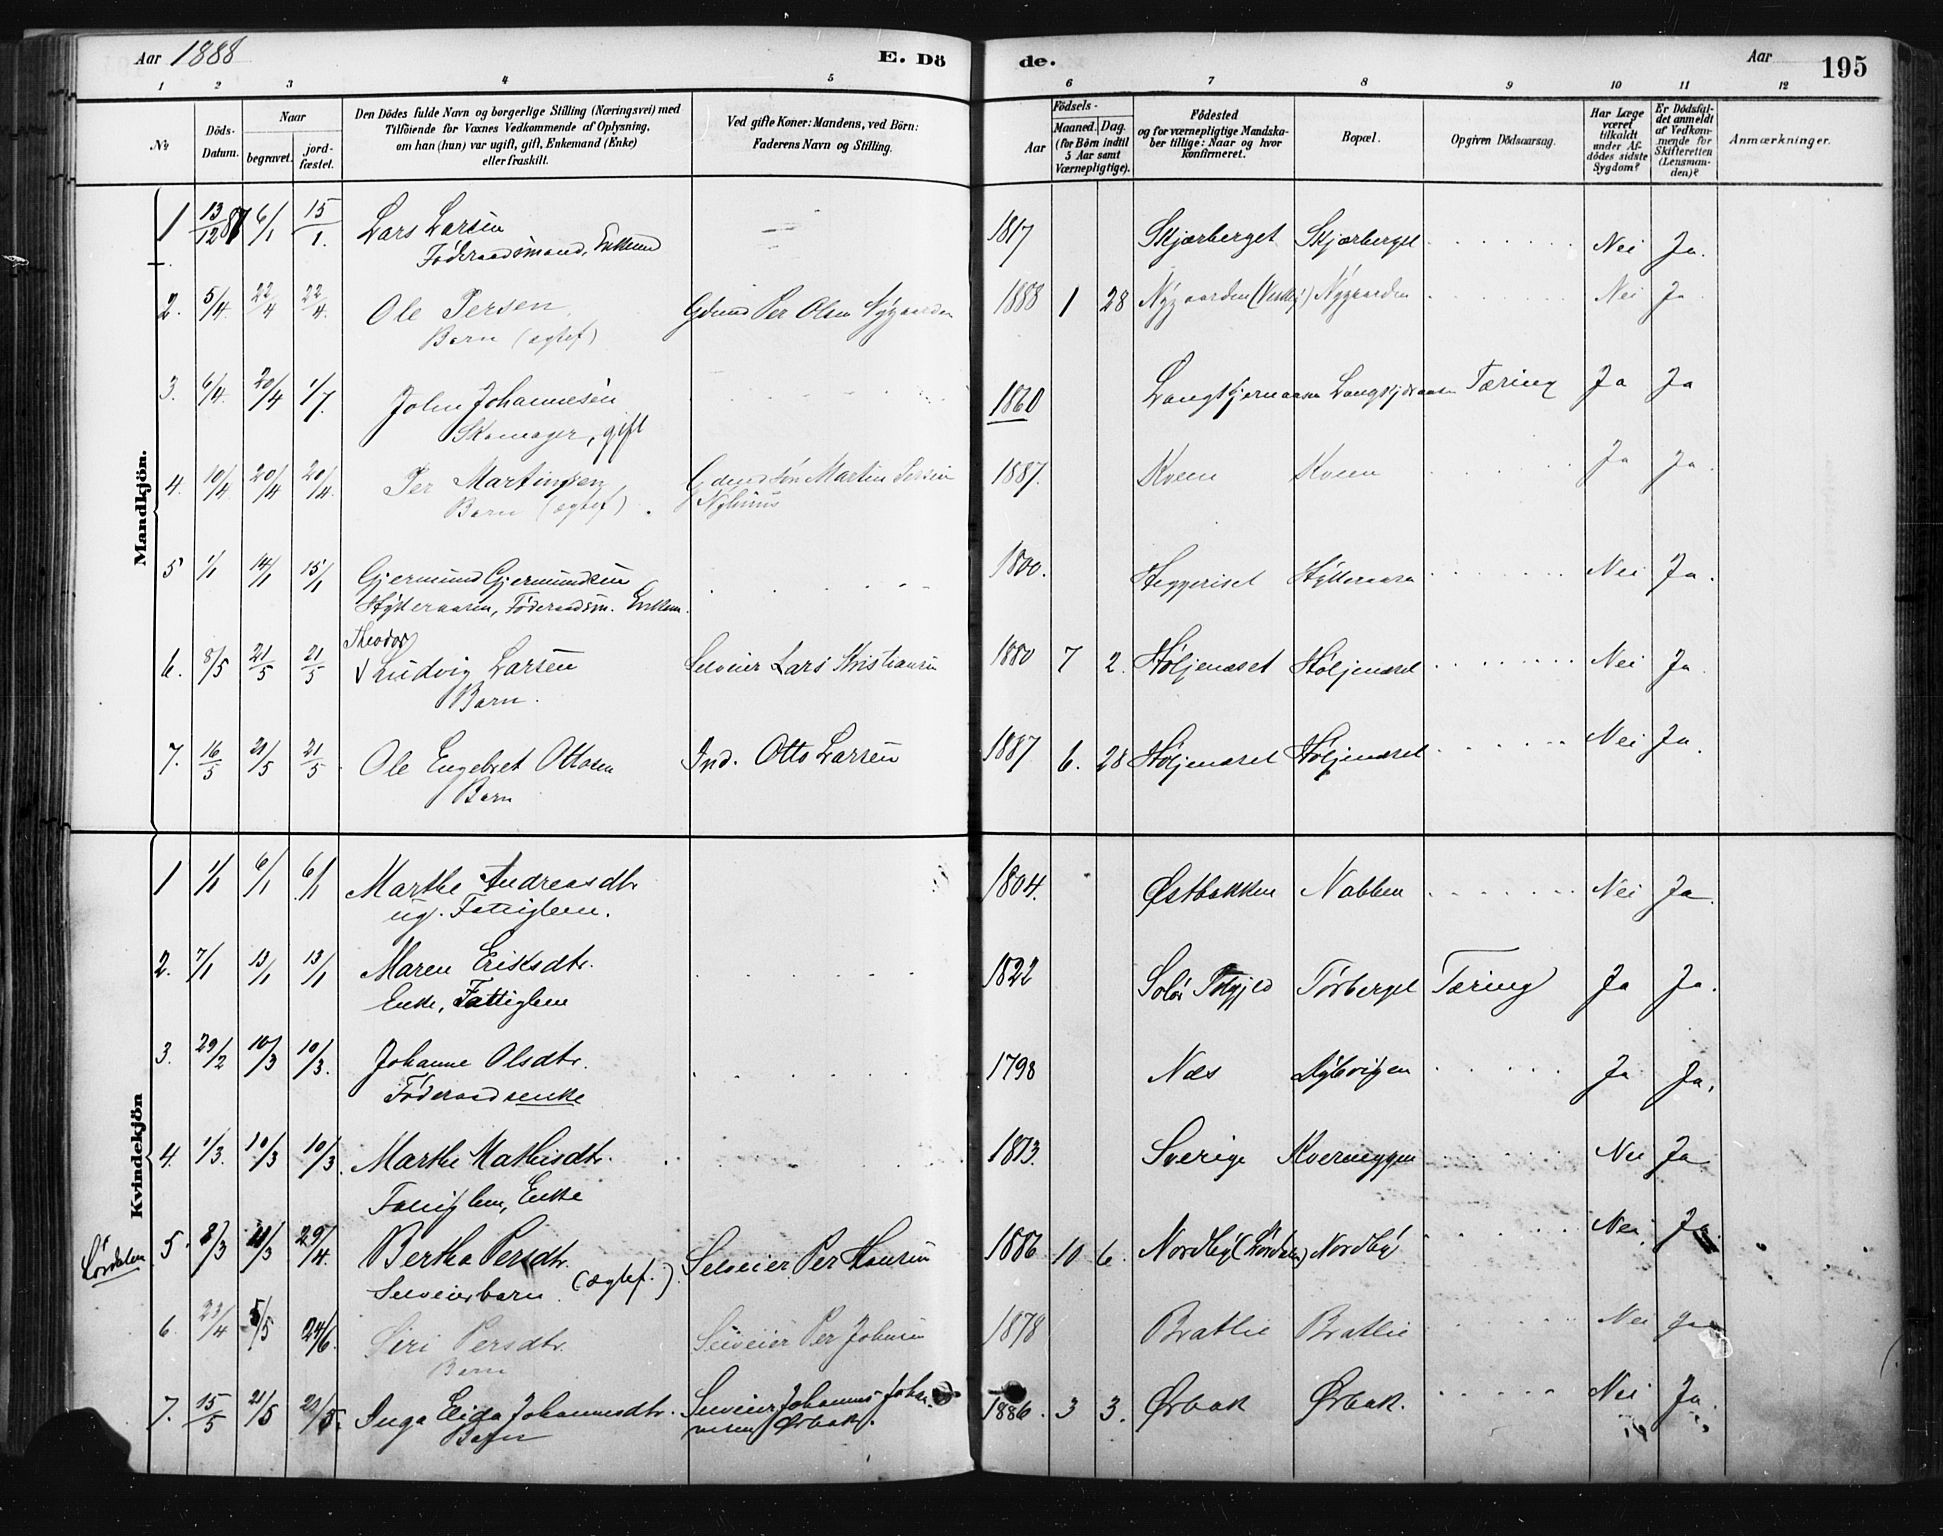 Aar 1888 E. Dö de. Aar 195
1 2 3 4 5 6 7 8 9 10 11 12
No
Döds-Datum.
Naar
begravet.
jord-fæstet.
Den Dödes fulde Navn og borgerlige Stilling (Næringsvei) med
Tilföiende for Voxnes Vedkommende af Oplysning,
om han (hun) var ugift, gift, Enkemand (Enke)
eller fraskilt.
Ved gifte Koner: Mandens, ved Börn:
Faderens Navn og Stilling.
Födsels-
Aar
Maaned. Dag.
(for Börn indtil
5 Aar samt
Værnepligtige).
Födested
og for værnepligtige Mandska-
ber tillige: Naar og hvor
konfirmeret.
Bopæl.
Opgiven Dödsaarsag.
Har Læge
været
tilkaldt
under Af-
dödes sidste
Sygdom?
Er Dödsfal-
det anmeldt
af Vedkom-
mende for
Skifteretten
(Lensman-
den)?
Anmærkninger.
Mandkjön.
1 13/12 87 6/1 15/1. Lars Larsen 1817 Skjærberget Skjærberget Nei Ja.
Föderaadsmand, Enkem
2. 5/4 22/4 22/4. Ole Persen Gdmd Per Olsen Nygaarden 1888 1 28 Nygaarden Nygaarden Nei Ja
Barn (ægtef)
3. 6/4 20/4 1/7. John Johannesen 1860 Tæring Ja Ja
Skomager, gift
4. 10/4 20/4 20/4. Per Martinsen Martin 1887. Kveen Kveen Ja Ja.
Barn (ægtef).
5 1/1 14/1 15/1 Gjermund Gjermundsen 1800. Heggeriset Hytteraasen Nei Ja.
Hytteraasen, Föderaadsm. Enkem.
Theodor
6. 8/5 21/5 21/5 Ludvig Larsen Selveier Lars Kristiansen 1880 7 2. Höljenæset Höljenæset Nei Ja.
Barn.
7. 16/5 21/5 21/5 Ole Engebret Ottosen Ind. Otto Larsen 1887 6. 28 Höljenæset Höljenæset Nei Ja.
Barn
Kvindekjön
1 1/1 6/1 6/1 Marthe Andreasdtr 1804. Østbakken Nabben Nei Ja.
ug. Fattiglem.
2. 7/1 13/1 13/1 Maren Eriksdtr. 1822 Solör Törberget Tæring Ja Ja.
Enke, Fattiglem
3. 29/2 10/3 10/3. Johanne Olsdtr. 1798 Næs Dybvigen Ja Ja,
Föderaadsenke
4. 1/3. 10/3 10/3. Marthe Mathisdtr. 1813. Sverige Kverneggen Nei Ja
Fattiglem, Enke
Lördalen 5. 8/3 11/3 29/4. Bertha Persdtr. Selveier Per Hansen 1886 10 6. Nordby (Lördalen) Nordby Nei Ja
Selveierbarn (ægtef.)
6. 23/4 5/5 24/6. Siri Persdtr. Selveier Per Johnsen 1878 Bratlie Bratlie Nei Ja
Barn
7. 15/5 21/5 21/5. Inga Elida Johannesdtr. Selveier Johannes Johan- 1886. 3 3. Ørbak Ørbak. Nei Ja.
Barn nesen Ørbak.